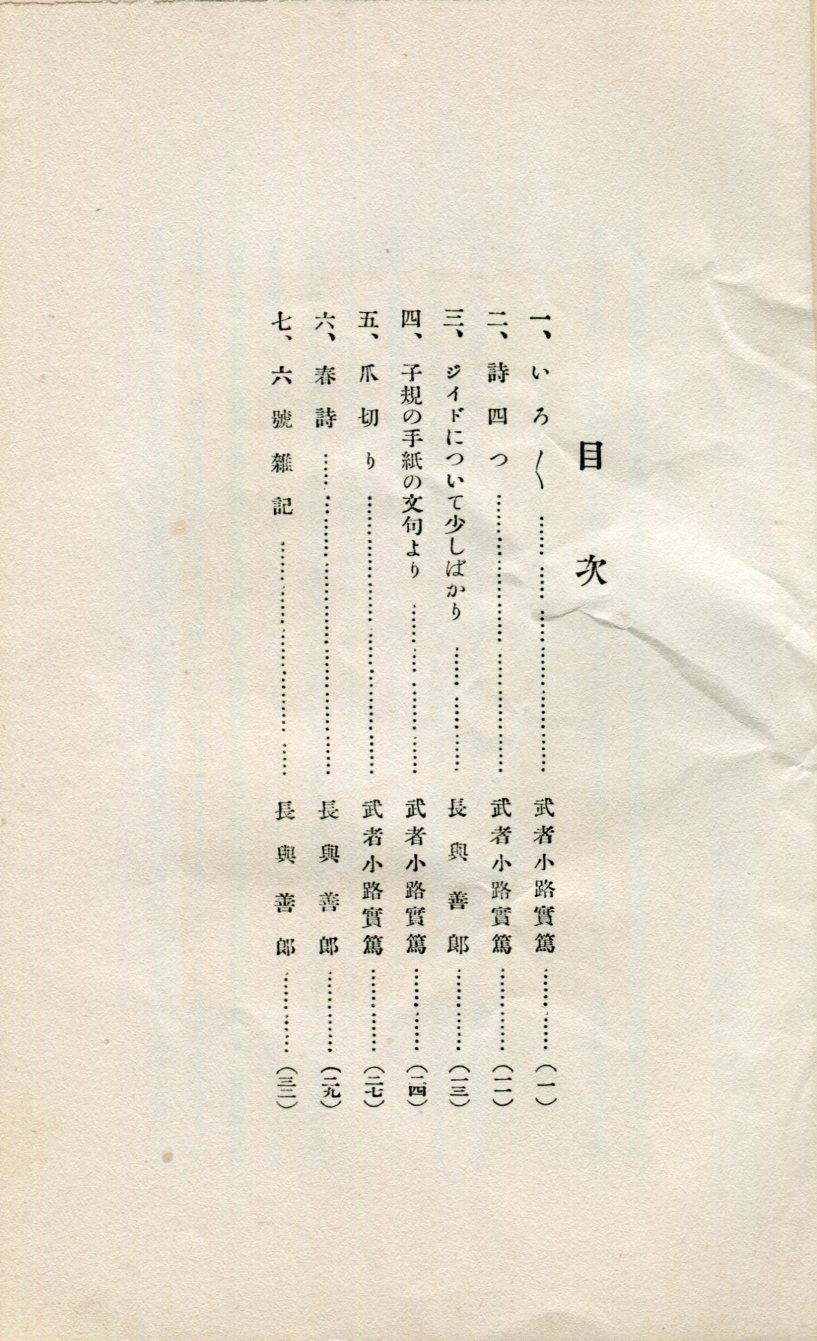 目次
一、いろ〱……………………武者小路實篤…………(一)
二、詩四つ……………………武者小路實篤…………(一一)
三、ジイドについて少しばかり……………長與善郎…………(一三)
四、子規の手紙の文句より……………武者小路實篤…………(二四)
五、爪切り……………………武者小路實篤…………(二七)
六、春詩……………………長與善郎…………(二九)
七、六號雜記……………………長與善郎…………(三二)